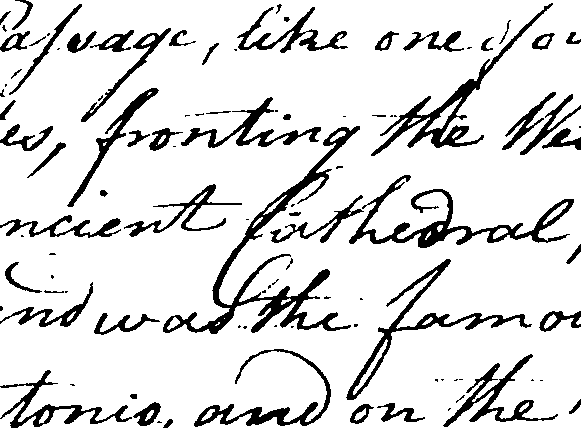 Passage, like one of ou
es, fronting the Wes
ncient Cathedral,
and was the famou
tonio, and on the